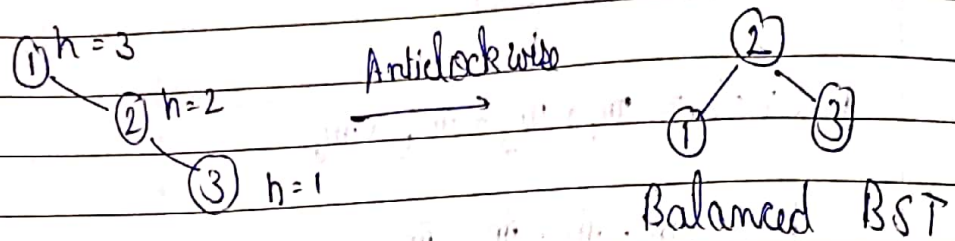 1 h = 3
2 h = 2
3 h = 1
Anticlockwise
2
1 3
Balanced BST